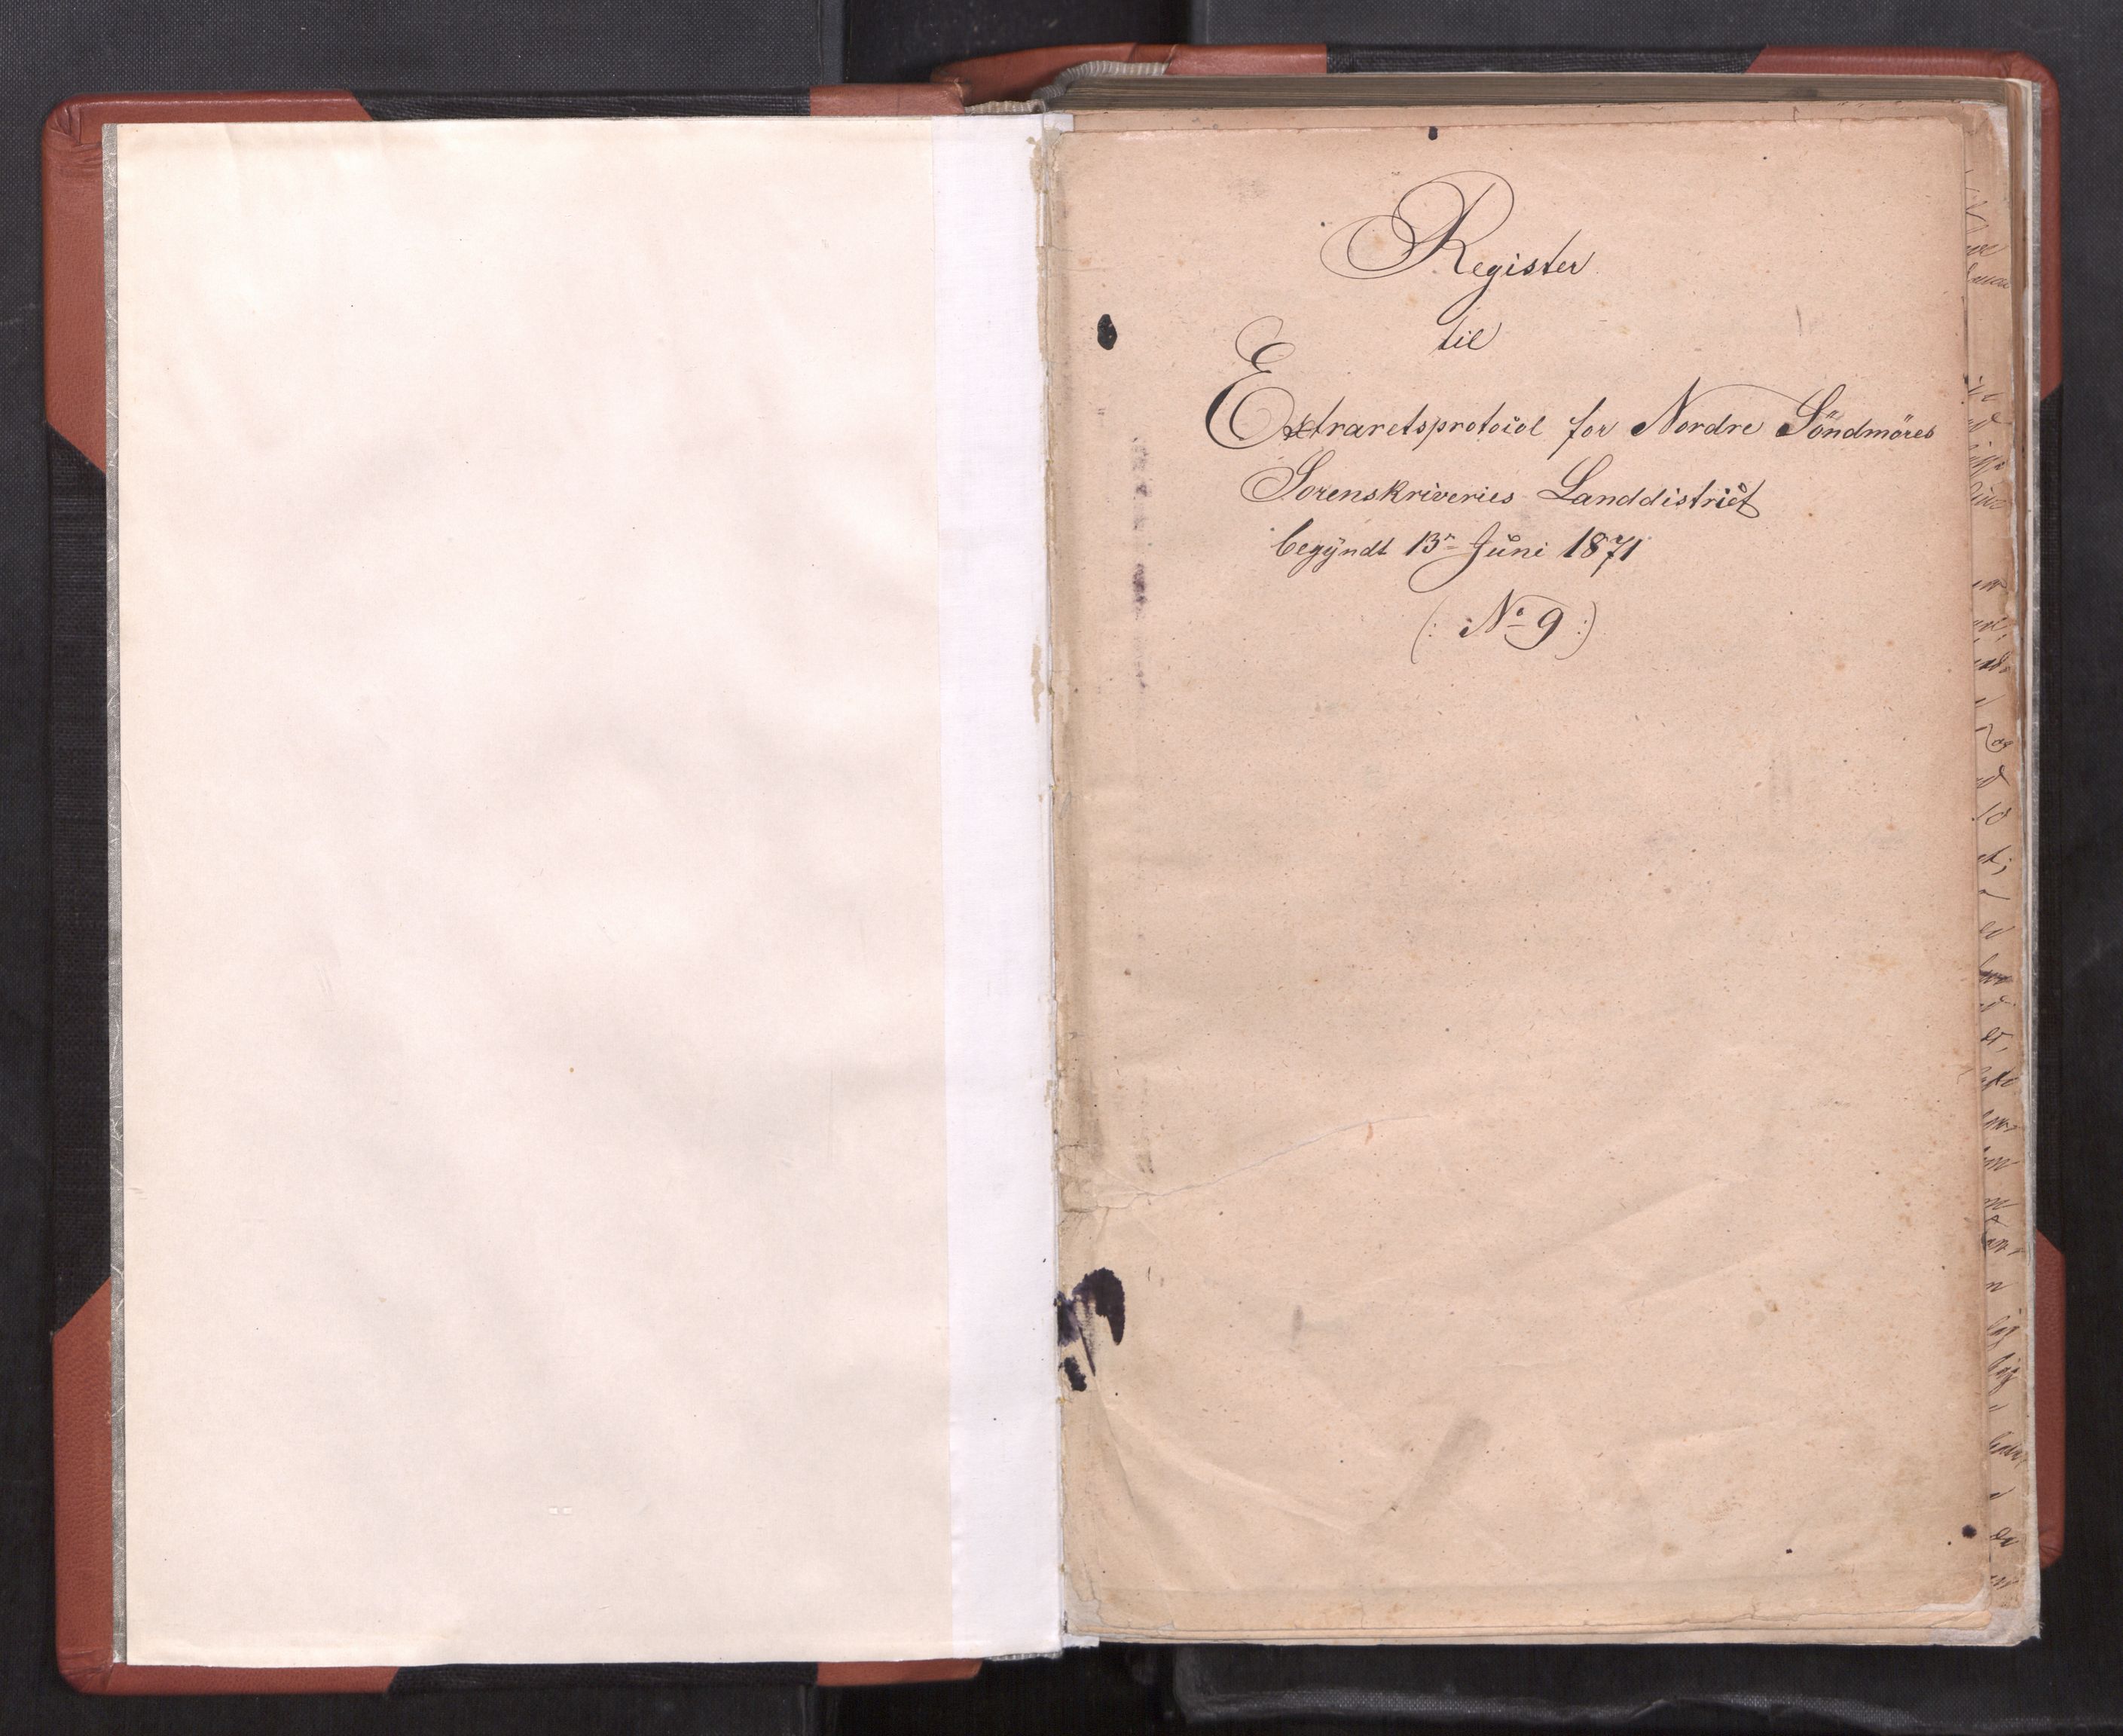 Register
til
Extraretsprotocol for Nordre Söndmöres
Sorenskriveries Landdistrict
begyndt 13de Juni 1871
(: No 9 :)